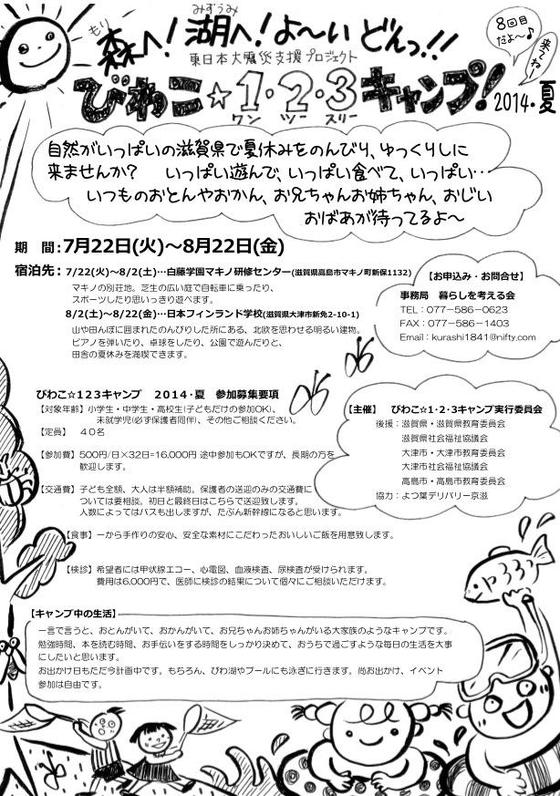 もり みずうみ
森へ!湖へ!よ〜い どんっ!!
8回目だよ〜♪
来てね!
東日本大震災支援プロジェクト
びわこ☆1・2・3キャンプ!
ワン ツー スリー
2014・夏
自然がいっぱいの滋賀県で夏休みをのんびり、ゆっくりしに
来ませんか? いっぱい遊んで、いっぱい食べて、いっぱい…
いつものおとんやおかん、お兄ちゃんお姉ちゃん、おじい
おばあが待ってるよ〜
期 間:7月22日(火)〜8月22日(金)
宿泊先:7/22(火)〜8/2(土)…白藤学園マキノ研修センター(滋賀県高島市マキノ町新保1132)
マキノの別荘地。芝生の広い庭で自転車に乗ったり、
スポーツしたり思いっきり遊べます。
8/2(土)〜8/22(金)…日本フィンランド学校(滋賀県大津市新免2-10-1)
山や田んぼに囲まれたのんびりした所にある、北欧を思わせる明るい建物。
ピアノを弾いたり、卓球をしたり、公園で遊んだりと、
田舎の夏休みを満喫できます。
【お申込み・お問合せ】
事務局 暮らしを考える会
TEL:077-586-0623
FAX:077-586-1403
Email:kurashi1841@nifty.com
びわこ☆123キャンプ 2014・夏 参加募集要項
【対象年齢】小学生・中学生・高校生(子どもだけの参加OK)、
未就学児(必ず保護者同伴)、その他ご相談ください。
【定員】 40名
【参加費】500円/日×32日=16,000円 途中参加もOKですが、長期の方を
歓迎します。
【交通費】子ども全額、大人は半額補助。保護者の送迎のみの交通費に
ついては要相談。初日と最終日はこちらで送迎致します。
人数によってはバスも出しますが、たぶん新幹線になると思います。
【食事】一から手作りの安心、安全な素材にこだわったおいしいご飯を用意致します。
【検診】希望者には甲状腺エコー、心電図、血液検査、尿検査が受けられます。
費用は6,000円で、医師に検診の結果について個々にご相談いただけます。
【主催】 びわこ☆1・2・3キャンプ実行委員会
後援:滋賀県・滋賀県教育委員会
滋賀県社会福祉協議会
大津市・大津市教育委員会
大津市社会福祉協議会
高島市・高島市教育委員会
協力:よつ葉デリバリー京滋
【キャンプ中の生活】
一言で言うと、おとんがいて、おかんがいて、お兄ちゃんお姉ちゃんがいる大家族のようなキャンプです。
勉強時間、本を読む時間、お手伝いをする時間をしっかり決めて、おうちで過ごすような毎日の生活を大事
にしたいと思います。
お出かけ日もただ今計画中です。もちろん、びわ湖やプールにも泳ぎに行きます。尚お出かけ、イベント
参加は自由です。